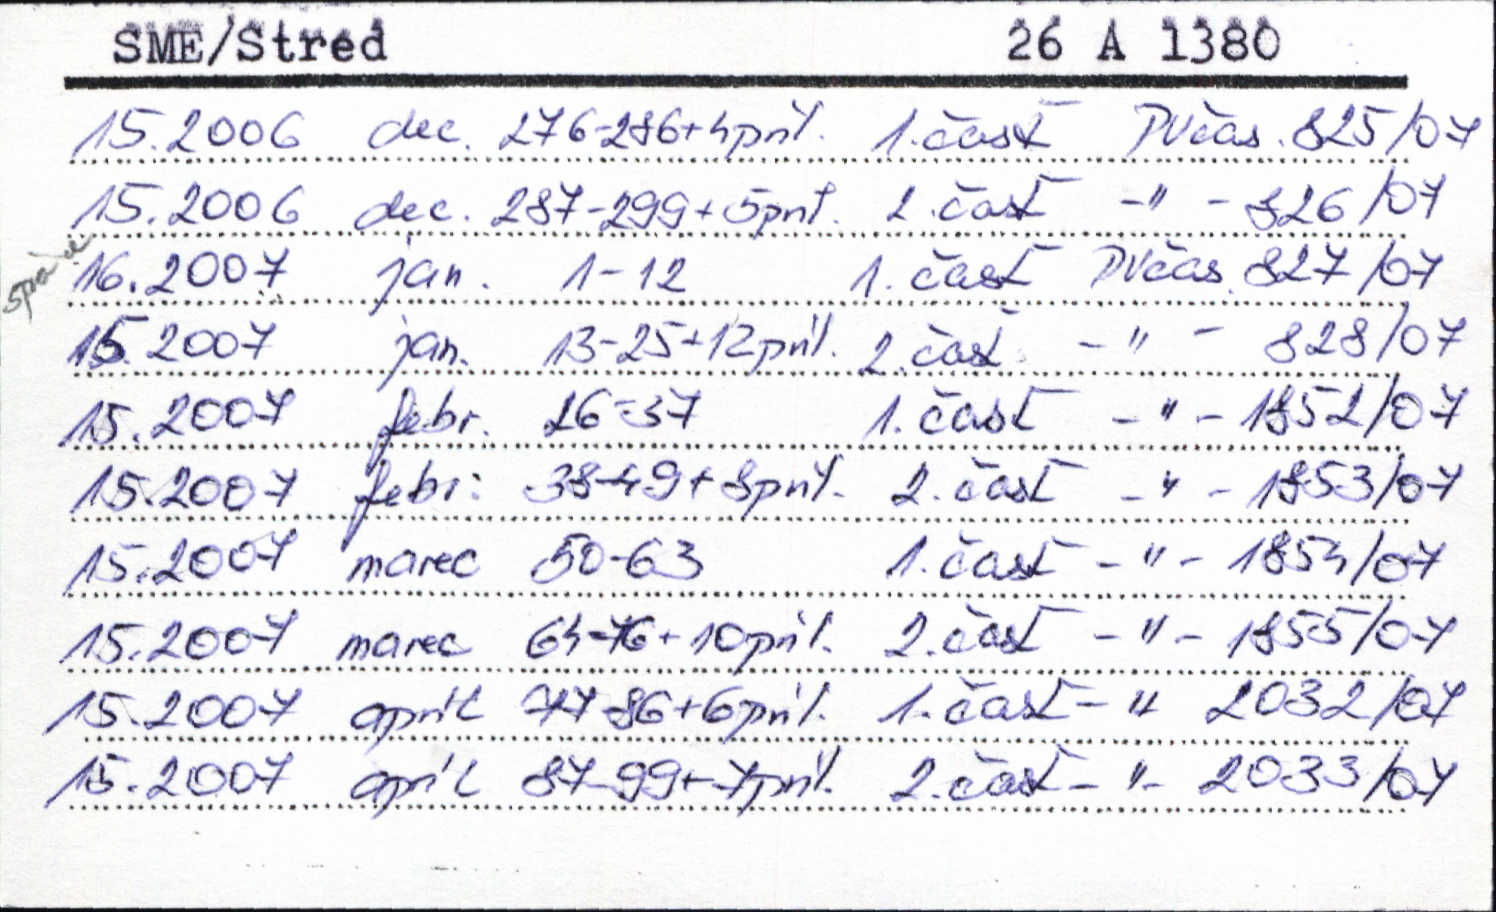 SME/Stred 26 A 1380
15.2006 dec. 276-286+4príl. 1.časť PVčas. 825/07
15.2006 dec. 287-299+5príl. 2.časť -"- 826/07
16.2007 jan. 1-12 1.časť PVčas. 827/07
15.2007 jan. 13-25+12príl. 2.časť -"- 828/07
15.2007 febr. 26-37 1.časť -"- 1852/07
15.2007 febr. 38-49+8príl. 2.časť -"- 1853/07
15.2007 marec 50-63 1.časť -"- 1854/07
15.2007 marec 64-76+10príl. 2.časť -"- 1855/07
15.2007 apríl 77-86+6príl. 1.časť -" 2032/07
15.2007 apríl 87-99+7príl. 2.časť -"- 2033/07